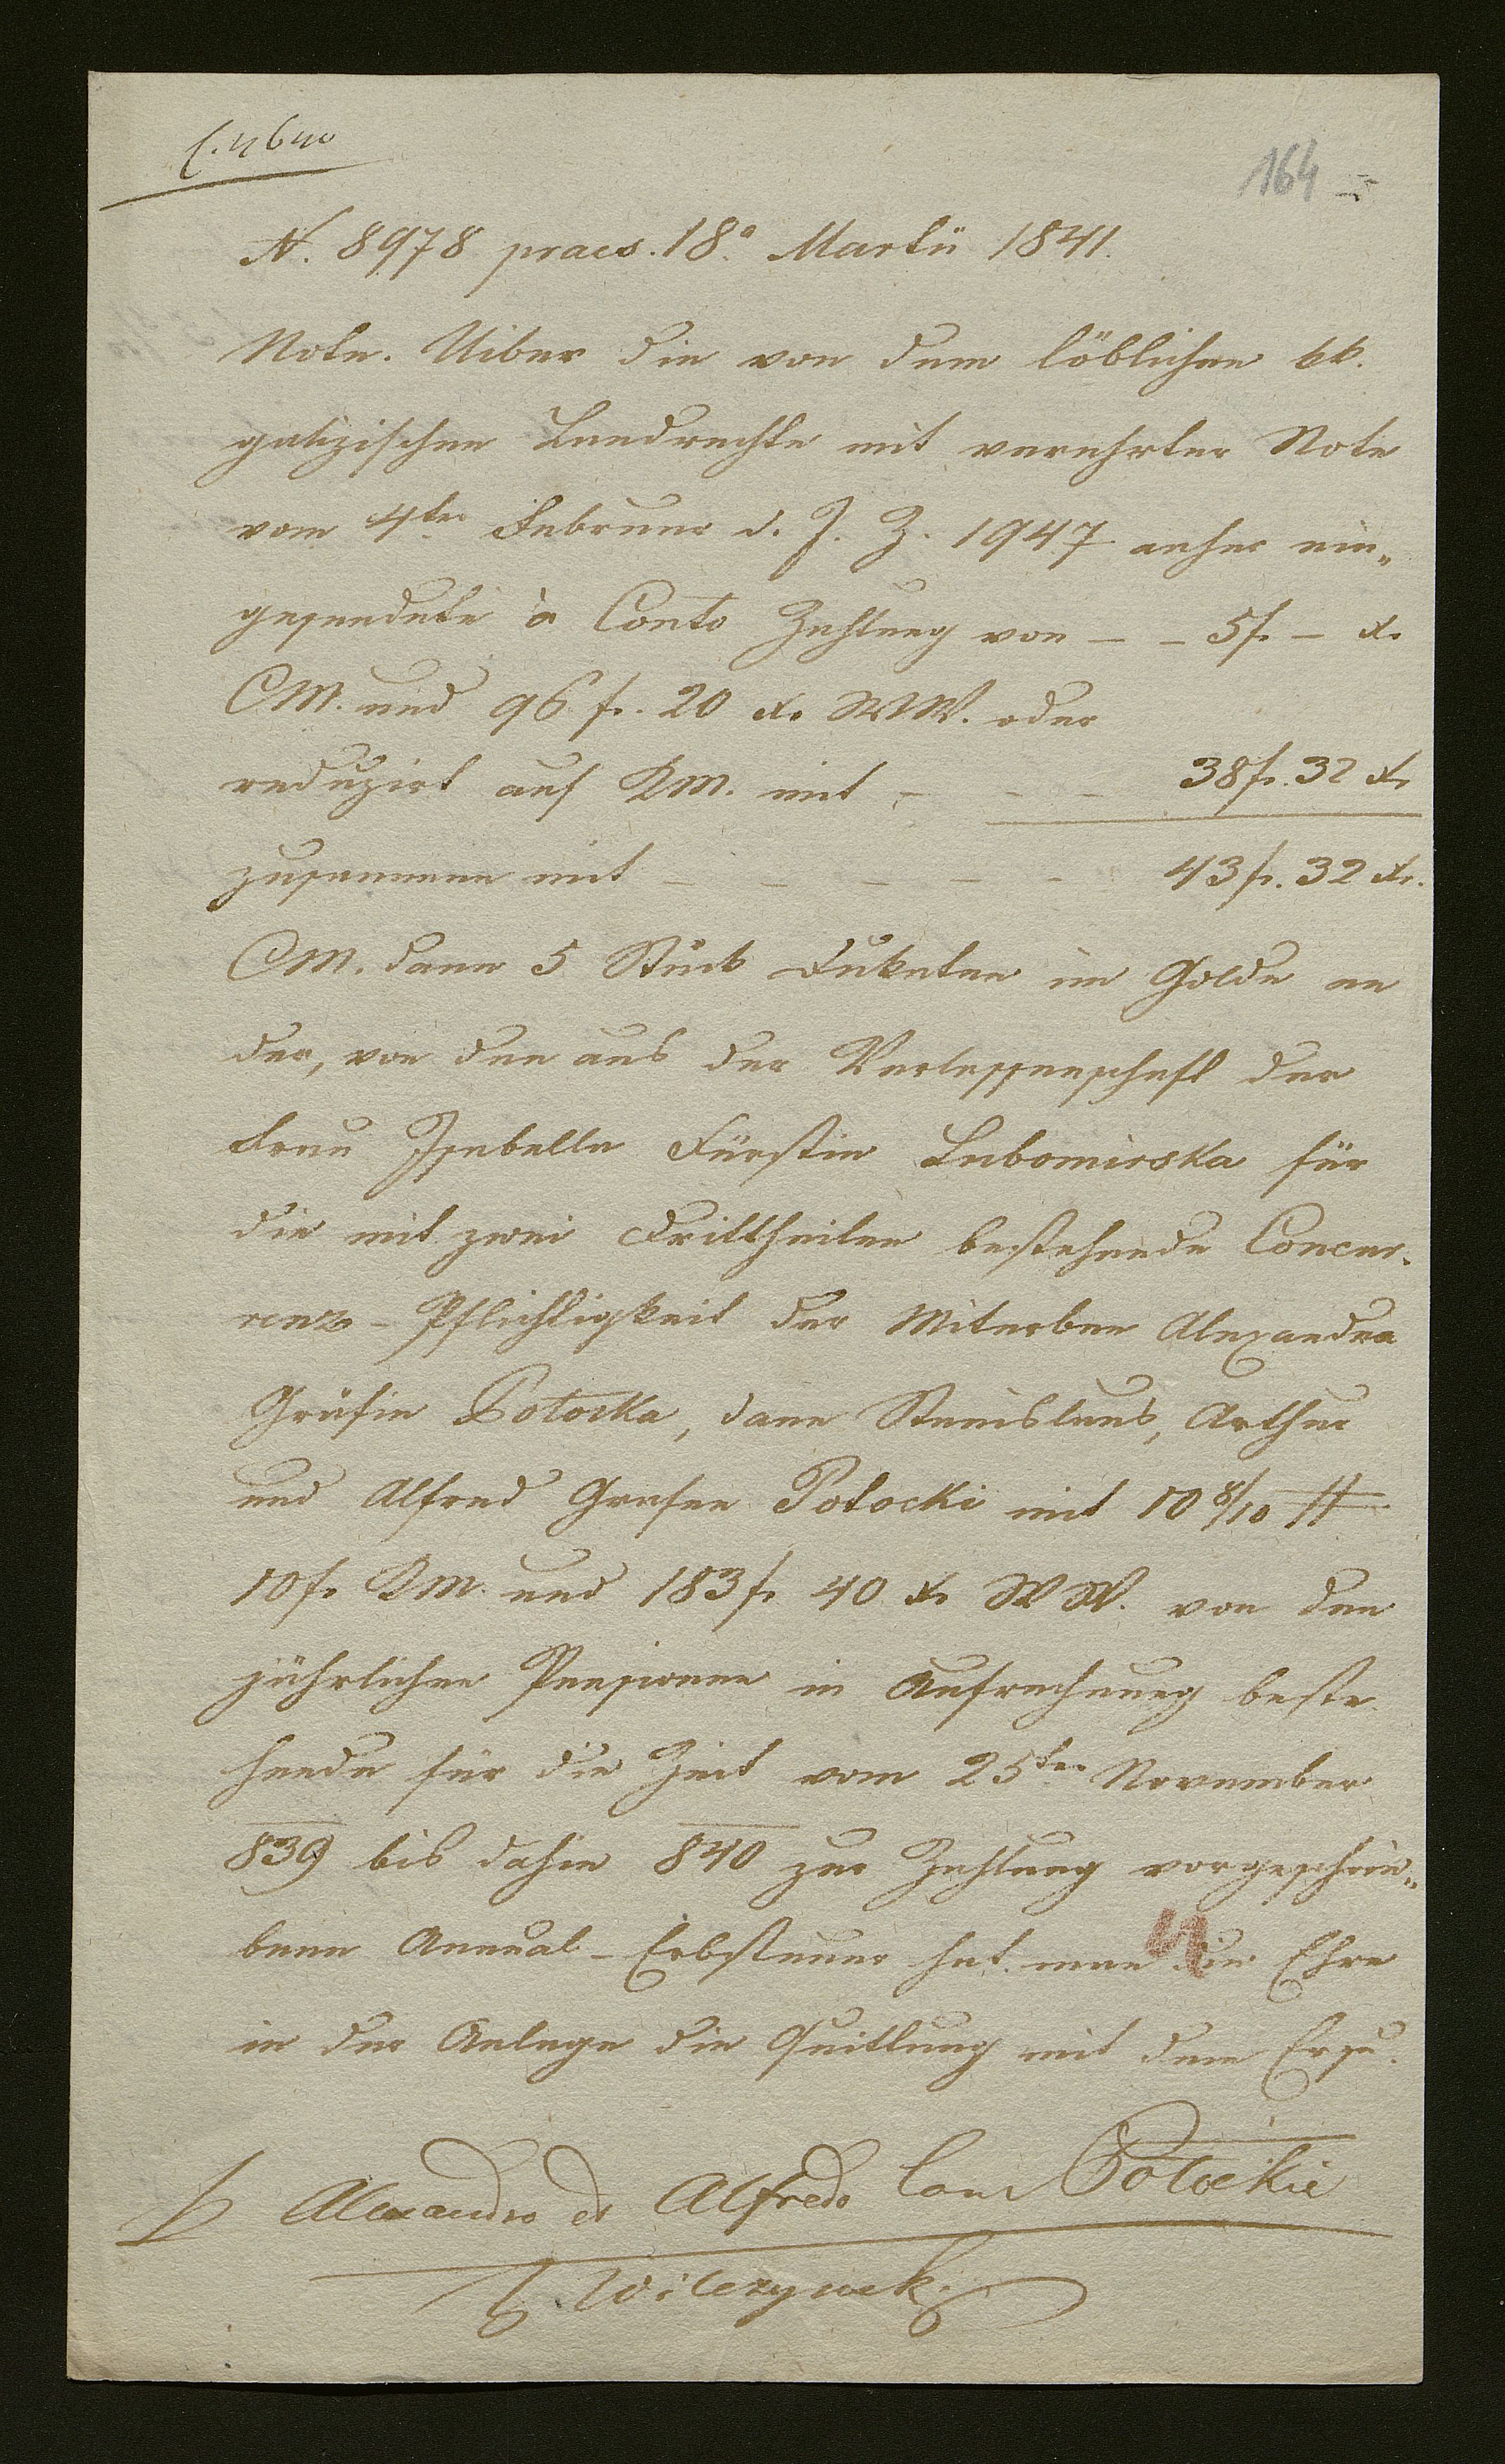 164
N. 8978 praes. 18° Martii 1841.
Note. Uiber die von dem löblichen kk.
galizischen Landrechte mit verehrter Note
vom 4ten Februar d. J. Z. 1947 anher ein„
gesendete à Conto Zahlung von – – 5f. – xr
CM. und 96 fr. 20 xr WW. oder
reduzirt auf KM. mit – – – 38fr. 32 xr
zusammen mit – – – – – 43fr. 32 xr.
CM. dann 5 Stück Dukaten im Golde an
der, von den aus der Verlassenschaft der
Frau Isabella Fürstin Lubomirska für
die mit zwei Drittheilen bestehende Concur-
renz-Pflichtigkeit der Miterben Alexandra
Gräfin Potocka, dann Stanislaus, Arthur
und Alfred Grafen Potocki mit 10 8/10 #
10fr KM. und 183fr 40 xr WW. von den
jährlichen Pensionen in Aufrechnung beste-
hende für die Zeit vom 25ten November
839 bis dahin 840 zur Zahlung vorgeschrie„
benen Annual-Erbsteuer hat man die Ehre
in der Anlage die Quittung mit dem Ersu-
Alexandro et Alfredo Com Potockie
Wilczynek